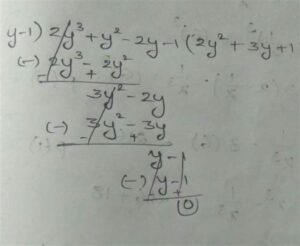 y-1) 2y³ + y² - 2y - 1 (2y² + 3y + 1
(-) 2y³ - 2y²
- +
3y² - 2y
(-) 3y² - 3y
- +
y - 1
(-) y - 1
- +
0